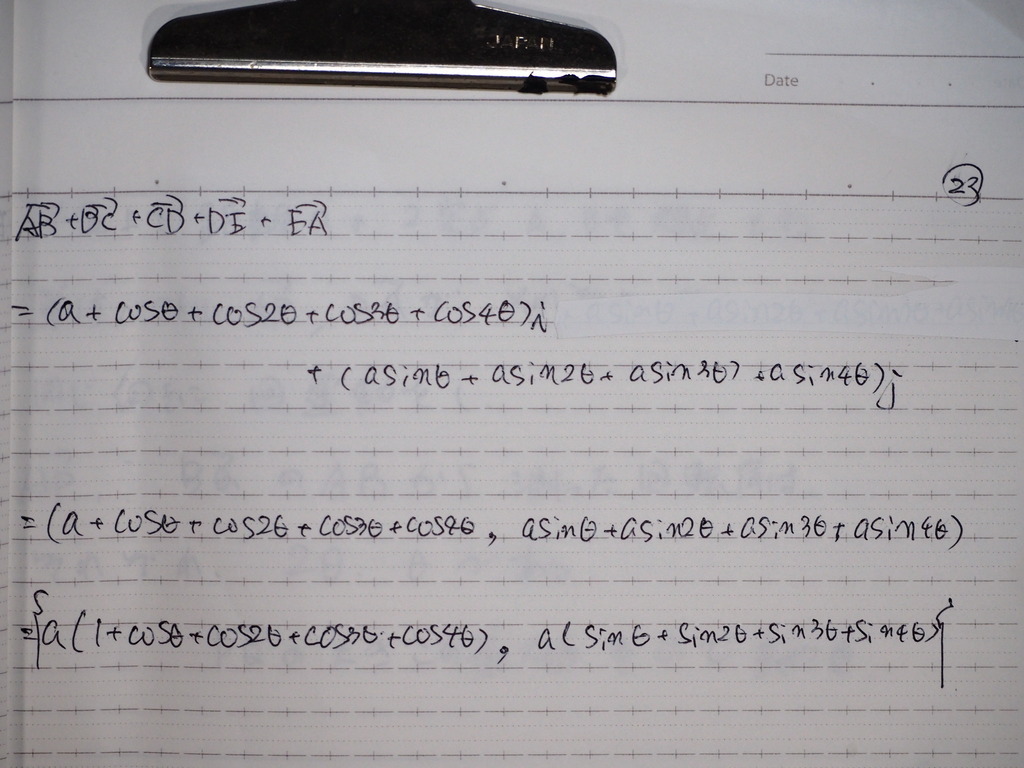 JAPAN
Date
23
AB + BC + CD + DE + EA
= (a + cosθ + cos2θ + cos3θ + cos4θ)i
+ (asinθ + asin2θ + asin3θ) + asin4θ)j
= (a + cosθ + cos2θ + cos3θ + cos4θ, asinθ + asin2θ + asin3θ + asin4θ)
= {a(1 + cosθ + cos2θ + cos3θ + cos4θ), a(sinθ + sin2θ + sin3θ + sin4θ)}